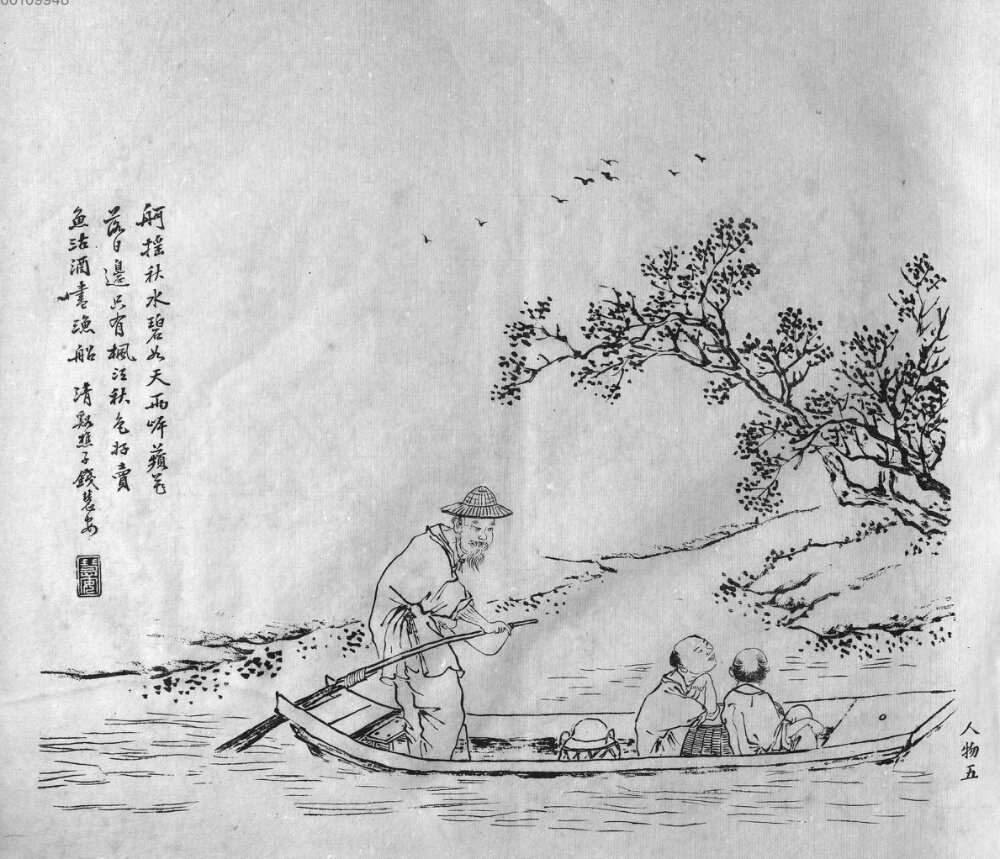 舸搖秋水碧如天兩岸蘋花
落日邊只有楓江秋色好賣
魚沽酒畫漁船 清谿樵子錢慧安
慧安
人物五
00109948